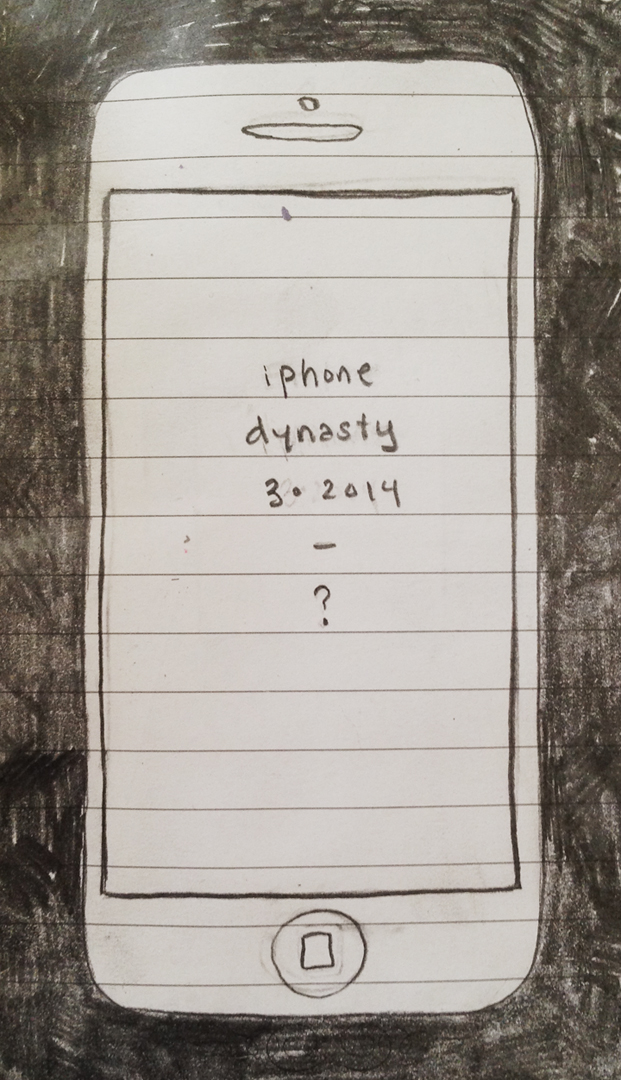 iphone
dynasty
3. 2014
-
?